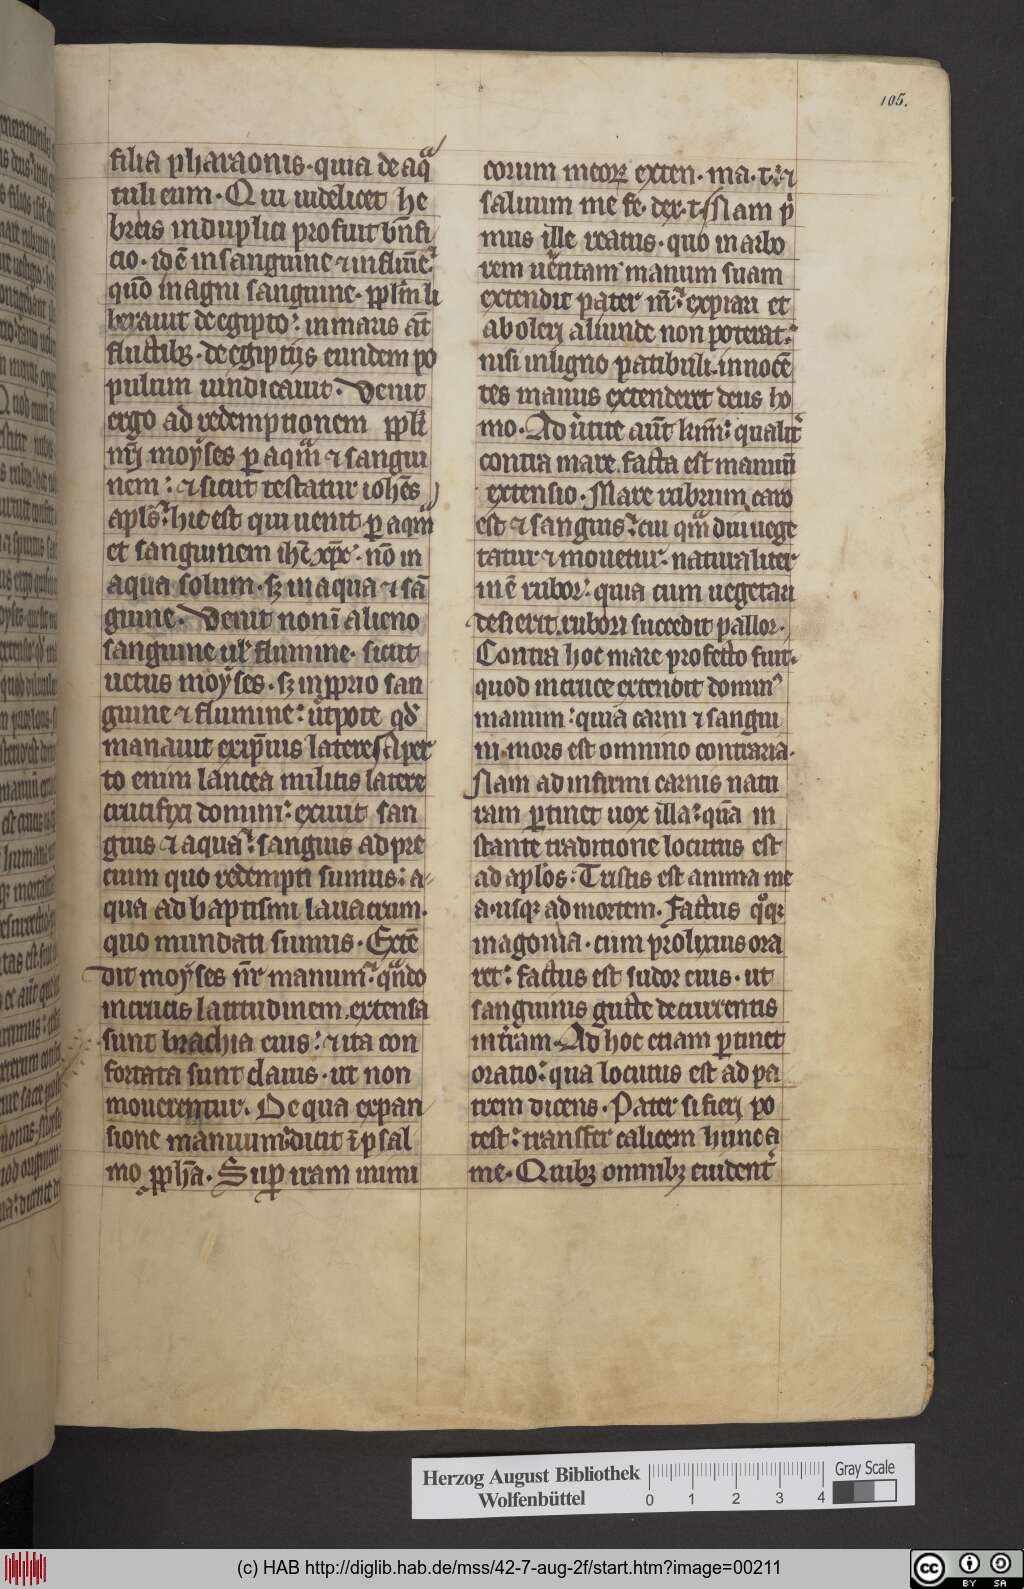 105.
filia pharaonis · quia de aq̄
tuli eum · Qui uidelicet he
breis in duplici profuit bn̄fi
cio · id ē in sanguine ⁊ in flum̄e ·
quō magni sanguine · pplm̄ li
berauit de egipto : in maris aūt
fluctibꝫ · de egiptijs eundem po
pulum uindicauit · Venit
ergo ad redemptionem ppl̄i
nr̄j moyses per aqm̄ ⁊ sangui
nem : ⁊ sicut testatur ioh̄es
apl̄s : hic est qui uenit ꝑ aqm̄
et sanguinem ih̄c xp̄c : nō in
aqua solum · sꝫ in aqua ⁊ sā
guine · Venit non ī alieno
sanguine ul̄ flumine · sicut
uetus moyses · sꝫ in pprio san
guine ⁊ flumine : utpote qd̄
manauit ex ip̄ius latere Aper
to enim lancea militis latere
crucifixi domini : exiuit san
guis ⁊ aqua : sanguis ad pre
cium quo redempti sumus : a-
qua ad baptismi lauacrum ·
quo mundati sumus · Extē
dit moyses nr̄ manum : qn̄do
in crucis latitudinem extensa
sunt brachia eius : ⁊ ita con
fortata sunt clauis · ut non
mouerentur · De qua expan
sione manuum dicit ī psal
mo pph̄a · Suꝑ iram inimi
corum meoꝝ exten · ma · t · : ⁊
saluum me fe · dex · t · Nam p̄
mus ille reatus · quo in arbo
rem uetitam manum suam
extendit pater nr̄ : expiari et
aboleri aliunde non poterat :
nisi in ligno patibuli · innocē
tes manus extenderet deus ho
mo · Aduertite aūt kmī : qualit̄
contra mare facta est manuū
extensio · Mare rubrum caro
est ⁊ sanguis : cui qm̄ diu uege
tatur ⁊ mouetur · naturaliter
inē rubor : quia cum uegetari
desierit rubori succedit pallor ·
Contra hoc mare profecto fuit ·
quod in cruce extendit domin⁹
manum : quia carni ⁊ sangui
ni mors est omnino contraria ·
Nam ad infirmi carnis natu
ram ꝑtinet uox illa : quā in
stante traditione locutus est
ad apl̄os : Tristis est anima me
a · usqꝫ ad mortem · Factus qoqꝫ
in agonia · cum prolixius ora
ret : factus est sudor eius · ut
sanguinis gutte decurrentis
in tr̄am · Ad hoc etiam ꝑtinet
oratio : qua locutus est ad pa
trem dicens · Pater si fieri po
test : transfer calicem hunc a
me · Quibꝫ omnibꝫ euident̄
Herzog August Bibliothek
Wolfenbüttel
0 1 2 3 4
Gray Scale
(c) HAB http://diglib.hab.de/mss/42-7-aug-2f/start.htm?image=00211
cc BY SA